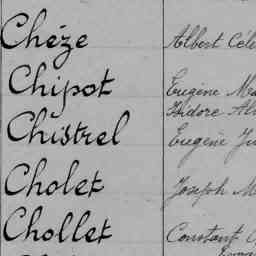 Chéze Albert
Chipot Eugène
Isidore
Chistrel Eugène
Cholet Joseph
Chollet Constant